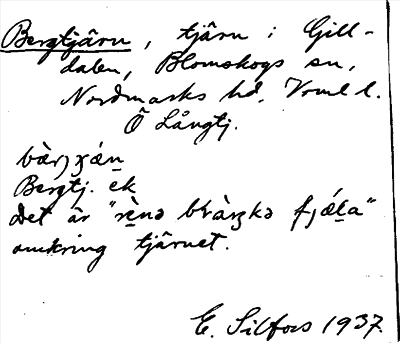 Bergtjärn, tjärn i Gill-
dalen, Blomskogs sn,
Nordmarks hd, Verml l.
Ö Långtj.
Bergtj. ek
Det är "rènə bràŋkə fjǽḷa"
omkring tjärnet.
E. Silfors 1937.